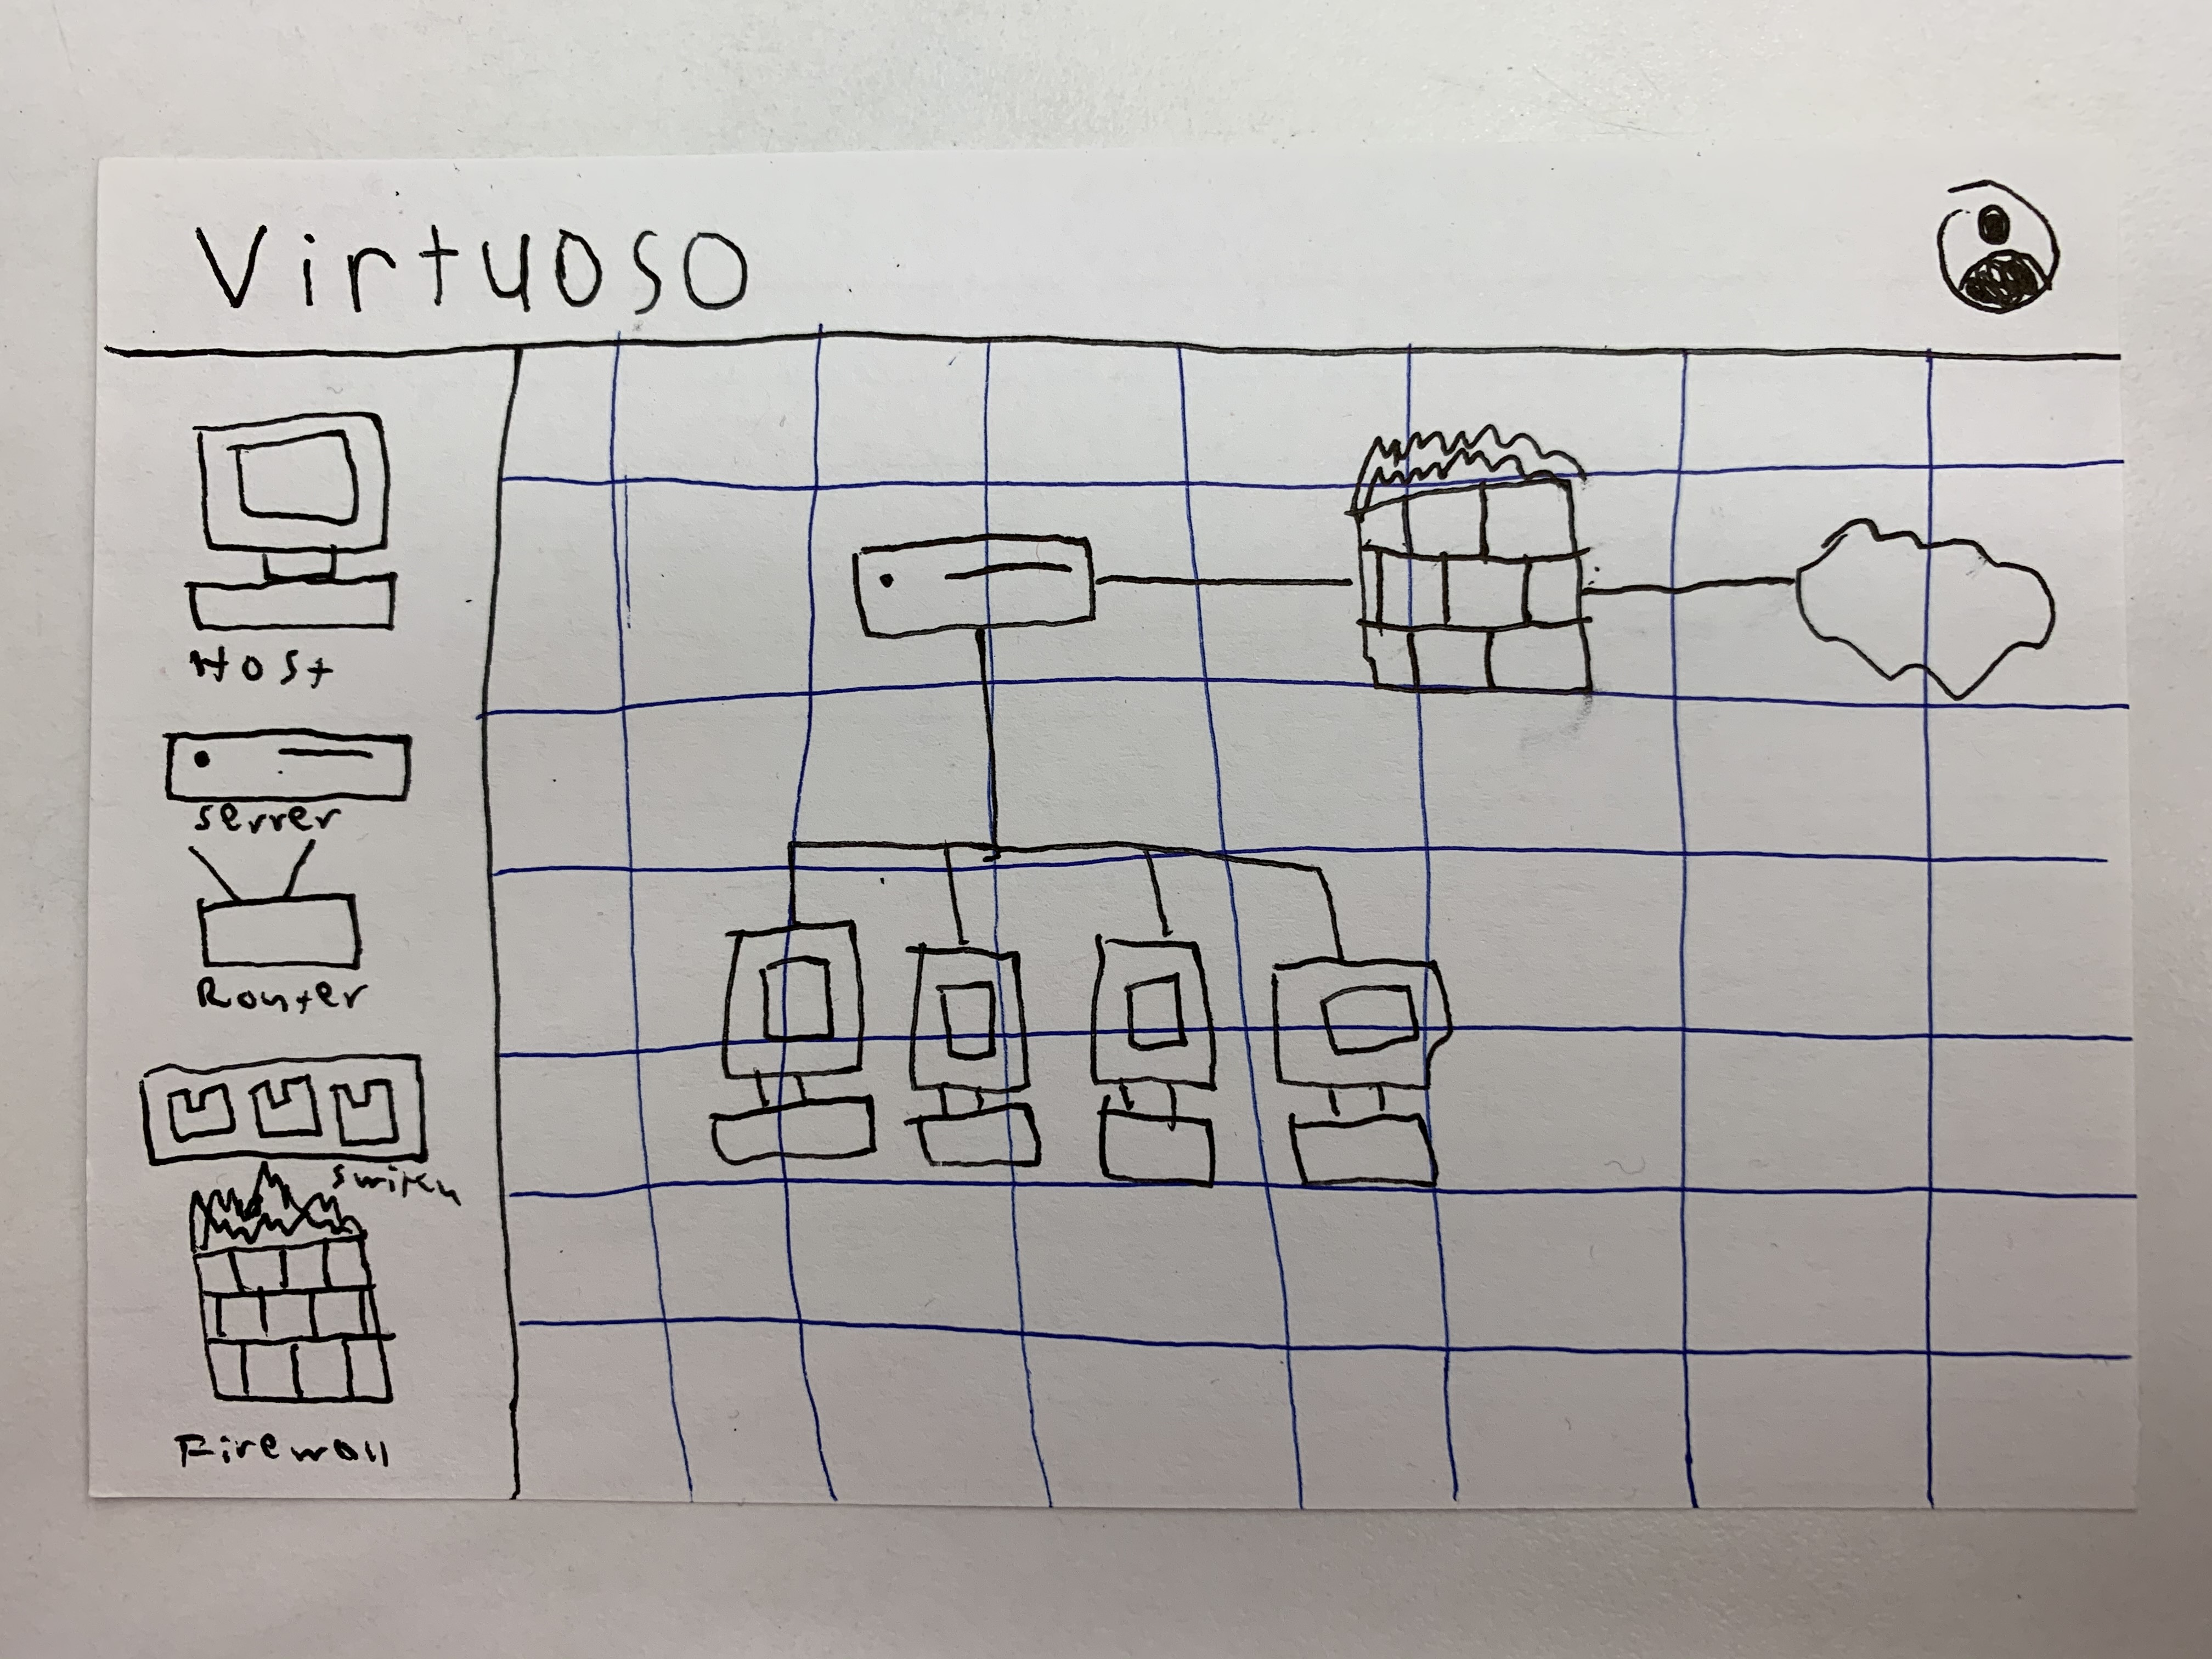 Virtuoso
Host
Server
Router
Firewall